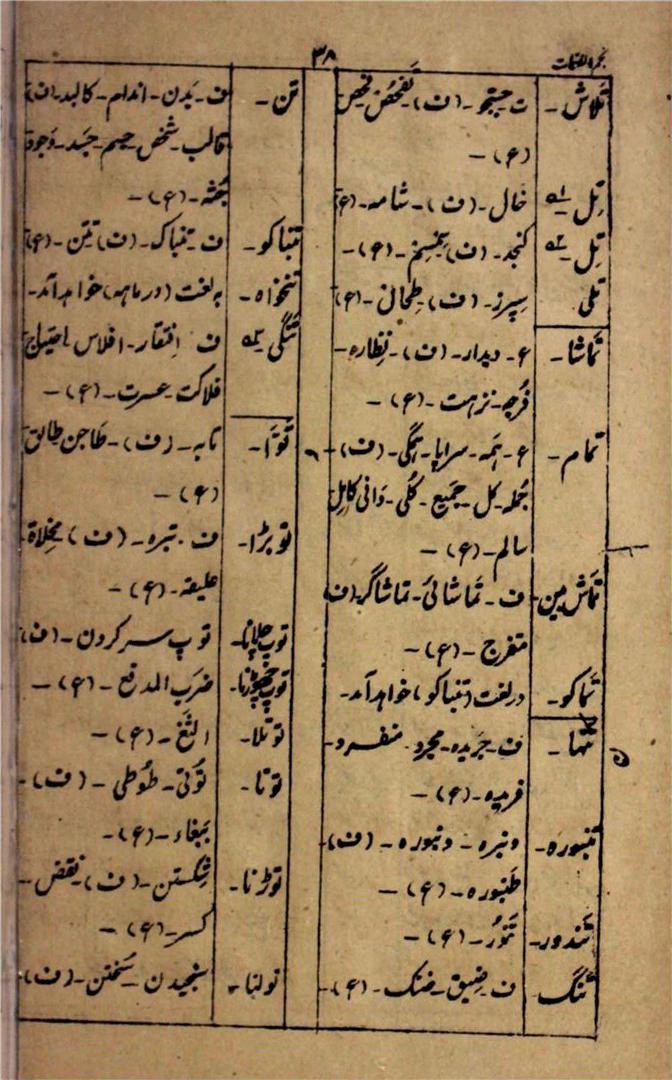 ۳۸
تلاش۔ ت جستجو۔ (ف) تفحص فحص
(ع)۔
تِل ۱ خال۔ (ف)۔ شامہ۔ (ع)
تِل ۲ کنجد۔ (ف) سمسم۔ (ع)۔
تلی سپرز۔ (ف) طحال۔ (ع)
تماشا۔ ع۔ دیدار۔ (ف)۔ نظارہ۔
فرجہ۔ نزہت۔ (ع)۔
تمام۔ ع۔ ہمہ۔ سراپا۔ ہمگی۔ (ف)۔
جملہ۔ کل۔ جمیع۔ کلی۔ وافی کامل
سالم۔ (ع)۔
تماش بین۔ ف۔ تماشائی۔ تماشاگر (ف)
متفرج۔ (ع)۔
تماکو۔ در لغت (تنباکو) خواہد آمد۔
تنہا۔ ف۔ جریدہ۔ مجرد۔ منفرد۔
فریدہ۔ (ع)۔
تنبورہ۔ دنبرہ۔ دنبورہ۔ (ف)۔
طنبورہ۔ (ع)۔
تندور۔ تنّور۔ (ع)۔
تنگ۔ ف۔ ضیق۔ ضنک۔ (ع)۔
تن۔ ف۔ بدن۔ اندام۔ کالبد۔ (ف)
قالب۔ شخص۔ جسم۔ جسد۔ وجود
جثہ۔ (ع)۔
تنباکو۔ ف۔ تنباک۔ (ف) تتن۔ (ع)
تنخواہ۔ بہ لغت (در ماہہ) خواہد آمد۔
تنگی ۲ ف۔ افتقار۔ افلاس احتیاج
فلاکت۔ عسرت۔ (ع)۔
توا۔ تابہ۔ (ف)۔ طاجن طابق
(ع)۔
توبڑا۔ ف۔ تبرہ۔ (ف) مخلاة۔
علیقہ۔ (ع)۔
توپ چلانا۔ توپ سر کردن۔ (ف)
توپ چھوڑنا۔ ضرب المدفع۔ (ع)۔
توتلا۔ الثغ۔ (ع)۔
توتا۔ توتی۔ طوطی۔ (ف)۔
ببغاء۔ (ع)۔
توڑنا۔ شکستن۔ (ف) نقض۔
کسر۔ (ع)۔
تولنا۔ سنجیدن۔ سختن۔ (ف)۔